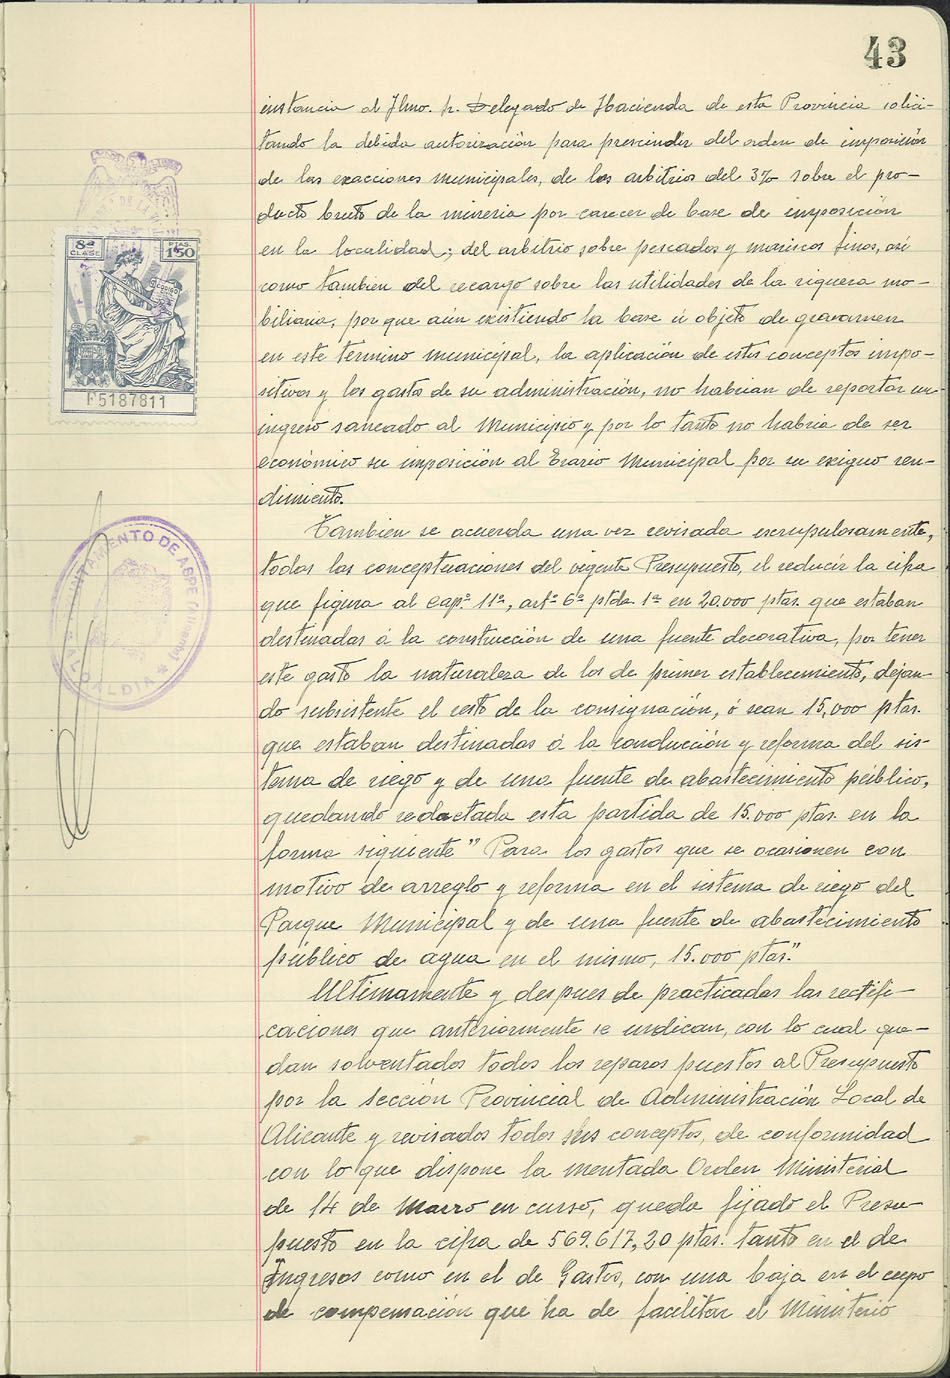 43
instancia al Ilmo. Sr. Delegado de Hacienda de esta Provincia solici-
tando la debida autorización para prescindir del orden de imposición
de las exacciones municipales, de los arbitrios del 3% sobre el pro-
ducto bruto de la mineria por carecer de base de imposición
en la localidad; del arbitrio sobre pescados y mariscos finos, asi
como tambien del recargo sobre las utilidades de la riqueza mo-
biliaria, por que aún existiendo la base ú objeto de gravamen
en este termino municipal, la aplicación de estos conceptos impo-
sitivos y los gastos de su administración, no habrian de reportar un
ingreso saneado al Municipio y por lo tanto no habria de ser
económico su imposición al Erario Municipal por su exiguo ren-
dimiento.
Tambien se acuerda una vez revisada escrupulosamente,
todas las conceptuaciones del vigente Presupuesto, el reducir la cifra
que figura al capº 11º, artº 6º ptda 1ª en 20.000 ptas. que estaban
destinadas á la construcción de una fuente decorativa, por tener
este gasto la naturaleza de los de primer establecimiento, dejan-
do subsistente el resto de la consignación, ó sean 15,000 ptas.
que estaban destinadas á la conducción y reforma del sis-
tema de riego y de una fuente de abastecimiento público,
quedando redactada esta partida de 15.000 ptas. en la
forma siguiente " Para los gastos que se ocasionen con
motivo de arreglo y reforma en el sistema de riego del
Parque Municipal y de una fuente de abastecimiento
público de agua en el mismo, 15.000 ptas."
Ultimamente y despues de practicadas las rectifi-
caciones que anteriormente se indican, con lo cual que-
dan solventados todos los reparos puestos al Presupuesto
por la Sección Provincial de Administración Local de
Alicante y revisados todos sus conceptos, de conformidad
con lo que dispone la mentada Orden Ministerial
de 14 de Marzo en curso, queda fijado el Presu-
puesto en la cifra de 569.617,20 ptas. tanto en el de
Ingresos como en el de Gastos, con una baja en el cupo
de compensación que ha de facilitar el Ministerio
8ª CLASE
PTAS. 1'50
F5187811
AYUNTAMIENTO DE ASPE (Alicante)
ALCALDIA